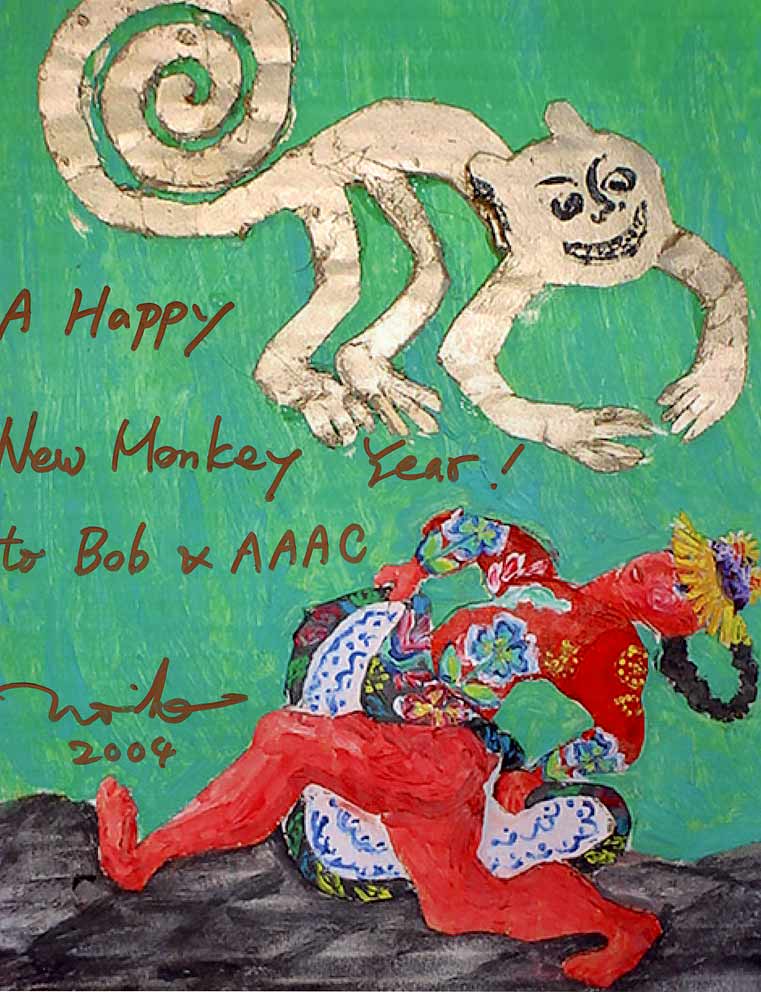 A Happy
New Monkey Year!
to Bob & AAAC
Noriko
2004